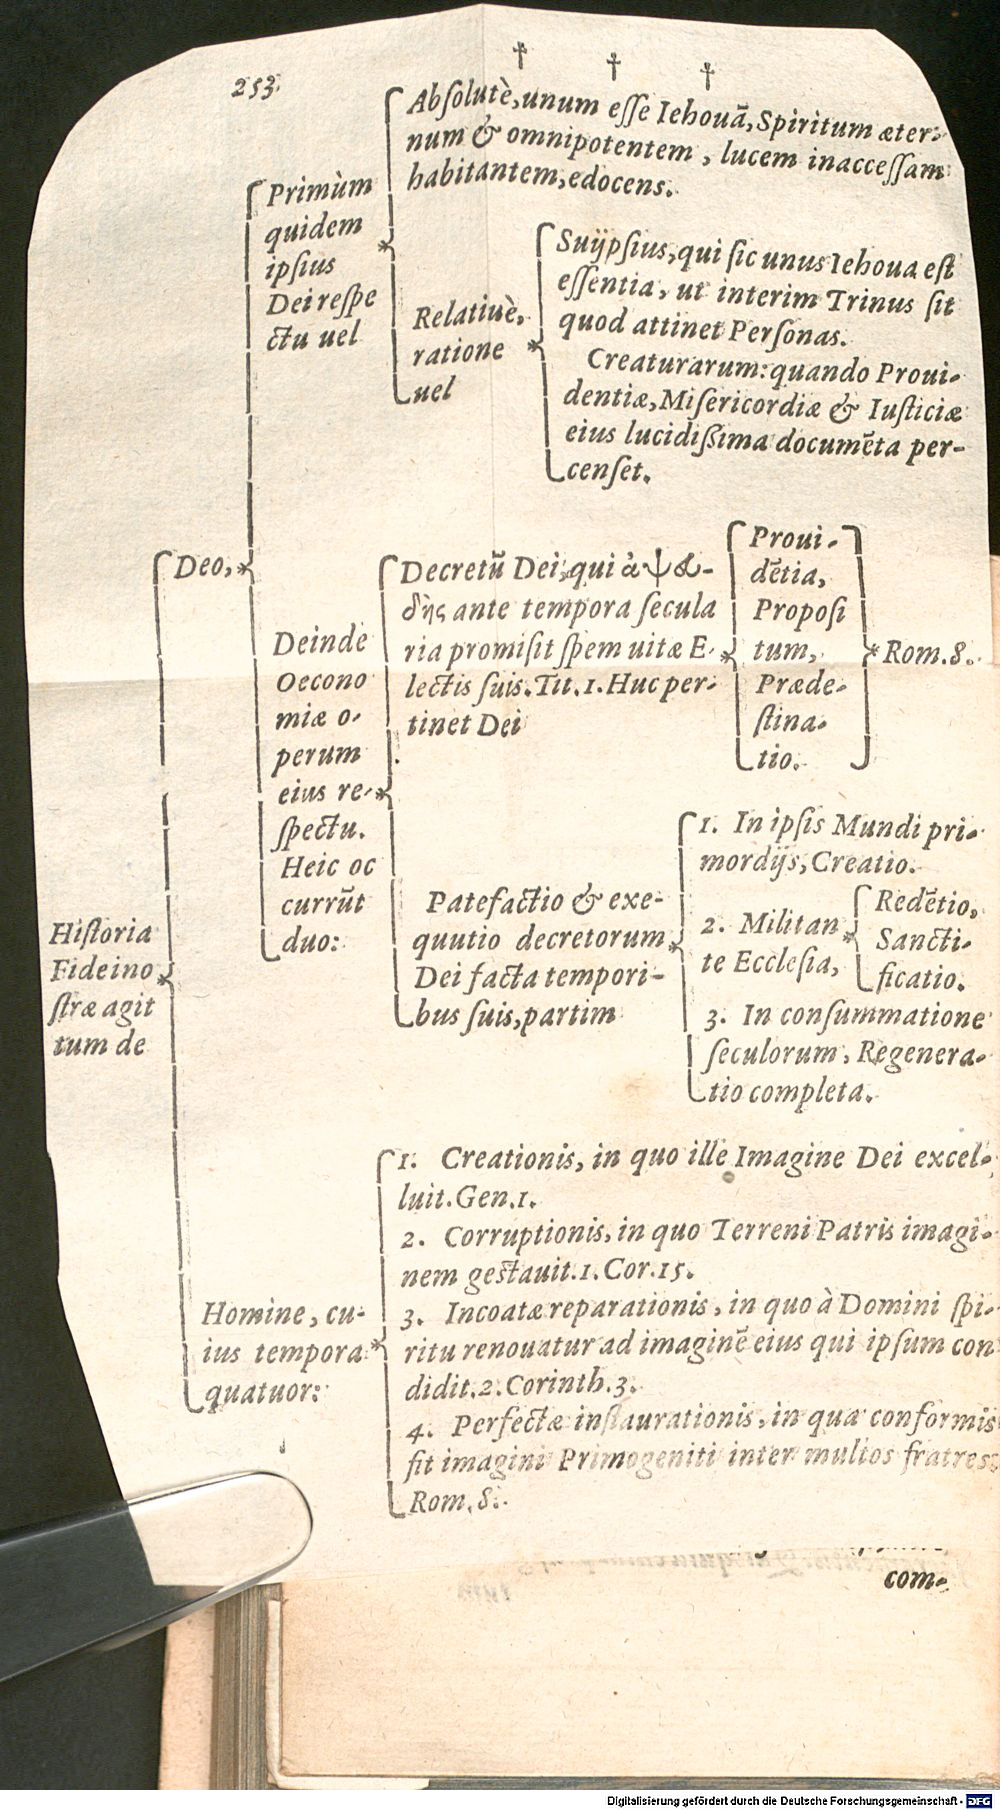 253.
† † †
Abſolutè, unum eſſe Iehouā, Spiritum æter-
num & omnipotentem, lucem inacceſſam
habitantem, edocens.
Primùm
quidem
ipſius
Dei reſpe
ctu uel
Relatiuè,
ratione
uel
Suijpſius, qui ſic unus Iehoua eſt
eſſentia, ut interim Trinus ſit
quod attinet Perſonas.
Creaturarum: quando Proui-
dentiæ, Miſericordiæ & Iuſticiæ
eius lucidiſſima documēta per-
cenſet.
Deo,
Deinde
Oecono
miæ o-
perum
eius re-
ſpectu.
Heic oc
currūt
duo:
Decretū Dei, qui ἀψευ-
δὴς ante tempora ſecula
ria promiſit ſpem uitæ E-
lectis ſuis. Tit. 1. Huc per-
tinet Dei
Proui-
dētia,
Propoſi
tum,
Præde-
ſtina-
tio.
Rom. 8.
Patefactio & exe-
quutio decretorum
Dei facta tempori-
bus ſuis, partim
1. In ipſis Mundi pri-
mordijs, Creatio.
2. Militan
te Eccleſia,
Redētio,
Sancti-
ficatio.
3. In conſummatione
ſeculorum, Regenera-
tio completa.
Hiſtoria
Fidei no
ſtræ agit
tum de
Homine, cu-
ius tempora
quatuor:
1. Creationis, in quo ille Imagine Dei excel-
luit. Gen. 1.
2. Corruptionis, in quo Terreni Patris imagi-
nem geſtauit. 1. Cor. 15.
3. Incoatæ reparationis, in quo à Domini ſpi-
ritu renouatur ad imaginē eius qui ipſum con
didit. 2. Corinth. 3.
4. Perfectæ inſtaurationis, in qua conformis
fit imagini Primogeniti inter multos fratres.
Rom. 8.
com-
Digitalisierung gefördert durch die Deutsche Forschungsgemeinschaft - DFG